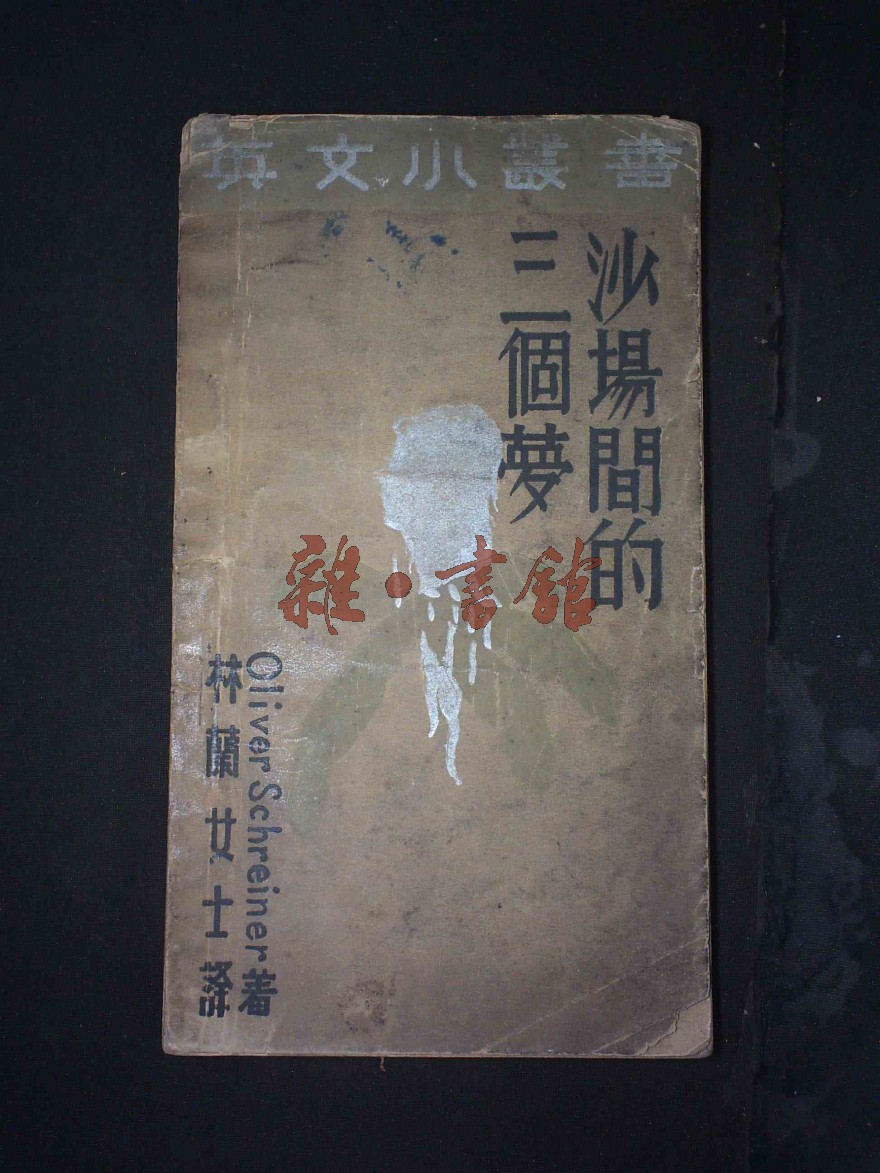 英文小叢書
沙場間的
三個夢
Oliver Schreiner著
林蘭女士譯
雜·書館